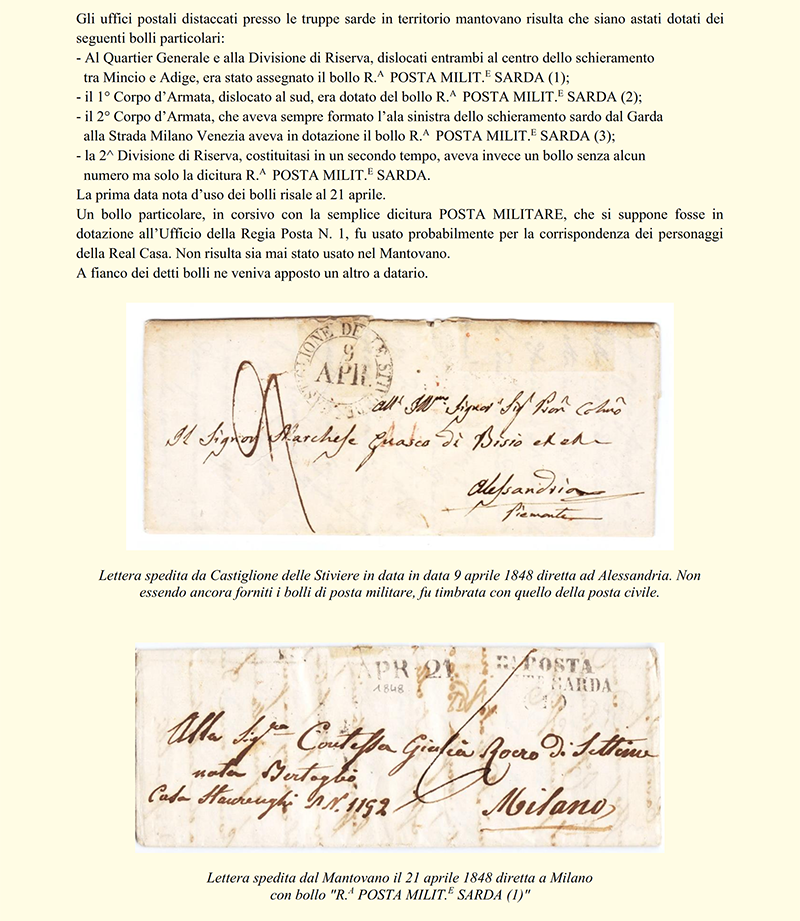 Gli uffici postali distaccati presso le truppe sarde in territorio mantovano risulta che siano astati dotati dei
seguenti bolli particolari:
- Al Quartier Generale e alla Divisione di Riserva, dislocati entrambi al centro dello schieramento
tra Mincio e Adige, era stato assegnato il bollo R.A POSTA MILIT.E SARDA (1);
- il 1° Corpo d’Armata, dislocato al sud, era dotato del bollo R.A POSTA MILIT.E SARDA (2);
- il 2° Corpo d’Armata, che aveva sempre formato l’ala sinistra dello schieramento sardo dal Garda
alla Strada Milano Venezia aveva in dotazione il bollo R.A POSTA MILIT.E SARDA (3);
- la 2^ Divisione di Riserva, costituitasi in un secondo tempo, aveva invece un bollo senza alcun
numero ma solo la dicitura R.A POSTA MILIT.E SARDA.
La prima data nota d’uso dei bolli risale al 21 aprile.
Un bollo particolare, in corsivo con la semplice dicitura POSTA MILITARE, che si suppone fosse in
dotazione all’Ufficio della Regia Posta N. 1, fu usato probabilmente per la corrispondenza dei personaggi
della Real Casa. Non risulta sia mai stato usato nel Mantovano.
A fianco dei detti bolli ne veniva apposto un altro a datario.
CASTIGLIONE DELLE STIVIERE
9
APR
Il Signor Marchese Guasco di Bisio
Alessandria
Piemonte
Lettera spedita da Castiglione delle Stiviere in data in data 9 aprile 1848 diretta ad Alessandria. Non
essendo ancora forniti i bolli di posta militare, fu timbrata con quello della posta civile.
APR 21
1848
RA POSTA
SARDA
(1)
Alla Sigra Contessa Giulia Rocro di Settime
nata Bertoglio
Casa N. 1192
Milano
Lettera spedita dal Mantovano il 21 aprile 1848 diretta a Milano
con bollo "R.A POSTA MILIT.E SARDA (1)"